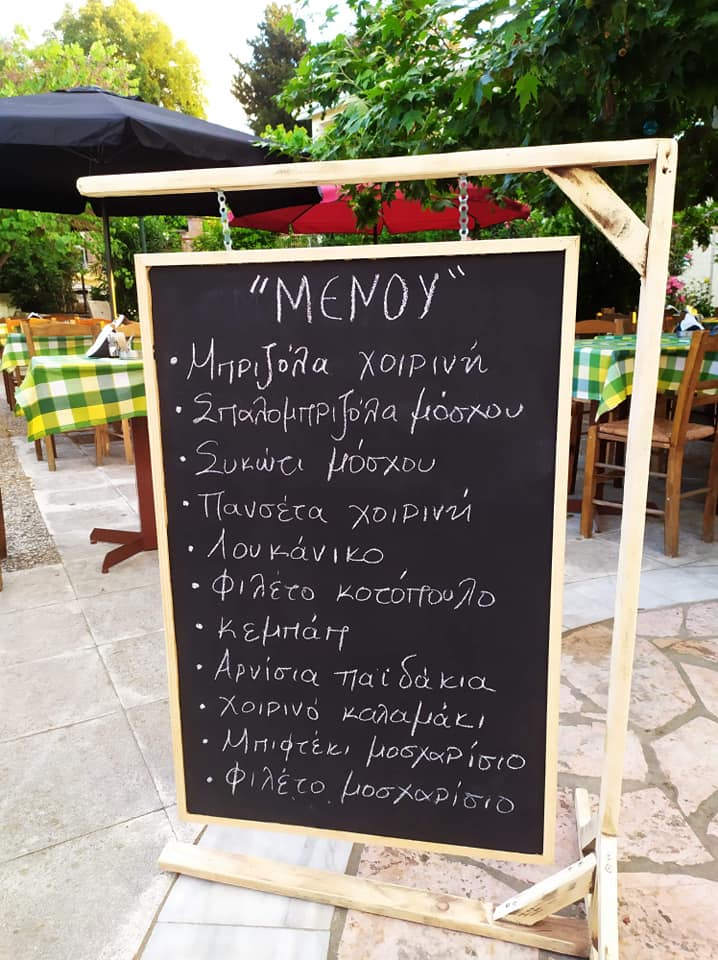 "ΜΕΝΟΥ"
• Μπριζόλα χοιρινή
• Σπαλομπριζόλα μόσχου
• Συκώτι μόσχου
• Πανσέτα χοιρινή
• Λουκάνικο
• Φιλέτο κοτόπουλο
• Κεμπάπ
• Αρνίσια παϊδάκια
• Χοιρινό καλαμάκι
• Μπιφτέκι μοσχαρίσιο
• Φιλέτο μοσχαρίσιο